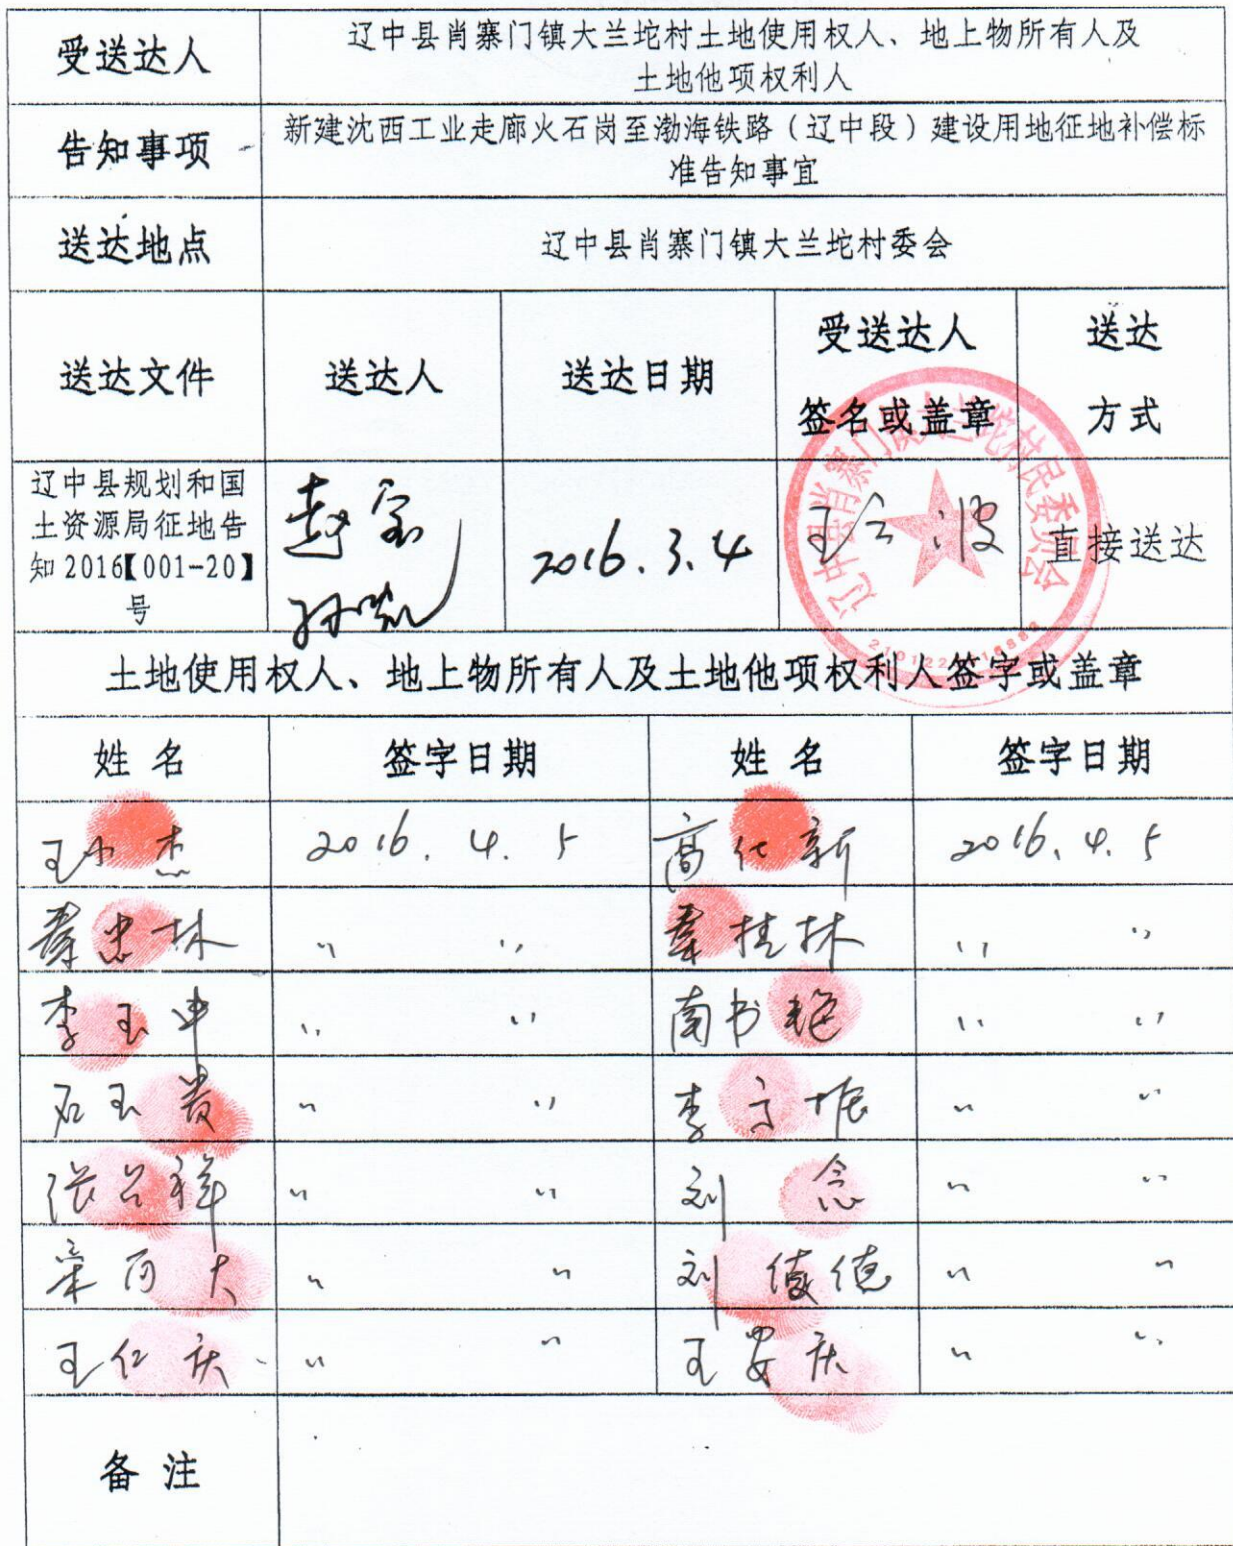 受送达人
辽中县肖寨门镇大兰坨村土地使用权人、地上物所有人及
土地他项权利人
告知事项
新建沈西工业走廊火石岗至渤海铁路（辽中段）建设用地征地补偿标
准告知事宜
送达地点
辽中县肖寨门镇大兰坨村委会
送达文件
送达人
送达日期
受送达人
签名或盖章
送达
方式
辽中县规划和国
土资源局征地告
知2016【001-20】
号
赵
孙凯
2016.3.4
王 波
辽中县肖寨门镇大兰坨村民委员会
直接送达
土地使用权人、地上物所有人及土地他项权利人签字或盖章
姓 名
签字日期
姓 名
签字日期
王 杰
2016. 4. 5
高 新
2016. 4. 5
忠林
〃 〃
桂林
〃 〃
李玉申
〃 〃
南书艳
〃 〃
石玉贵
〃 〃
李 振
〃 〃
张 祥
〃 〃
刘 念
〃 〃
〃 〃
刘俊德
〃 〃
王仁庆
〃 〃
王安庆
〃 〃
备 注